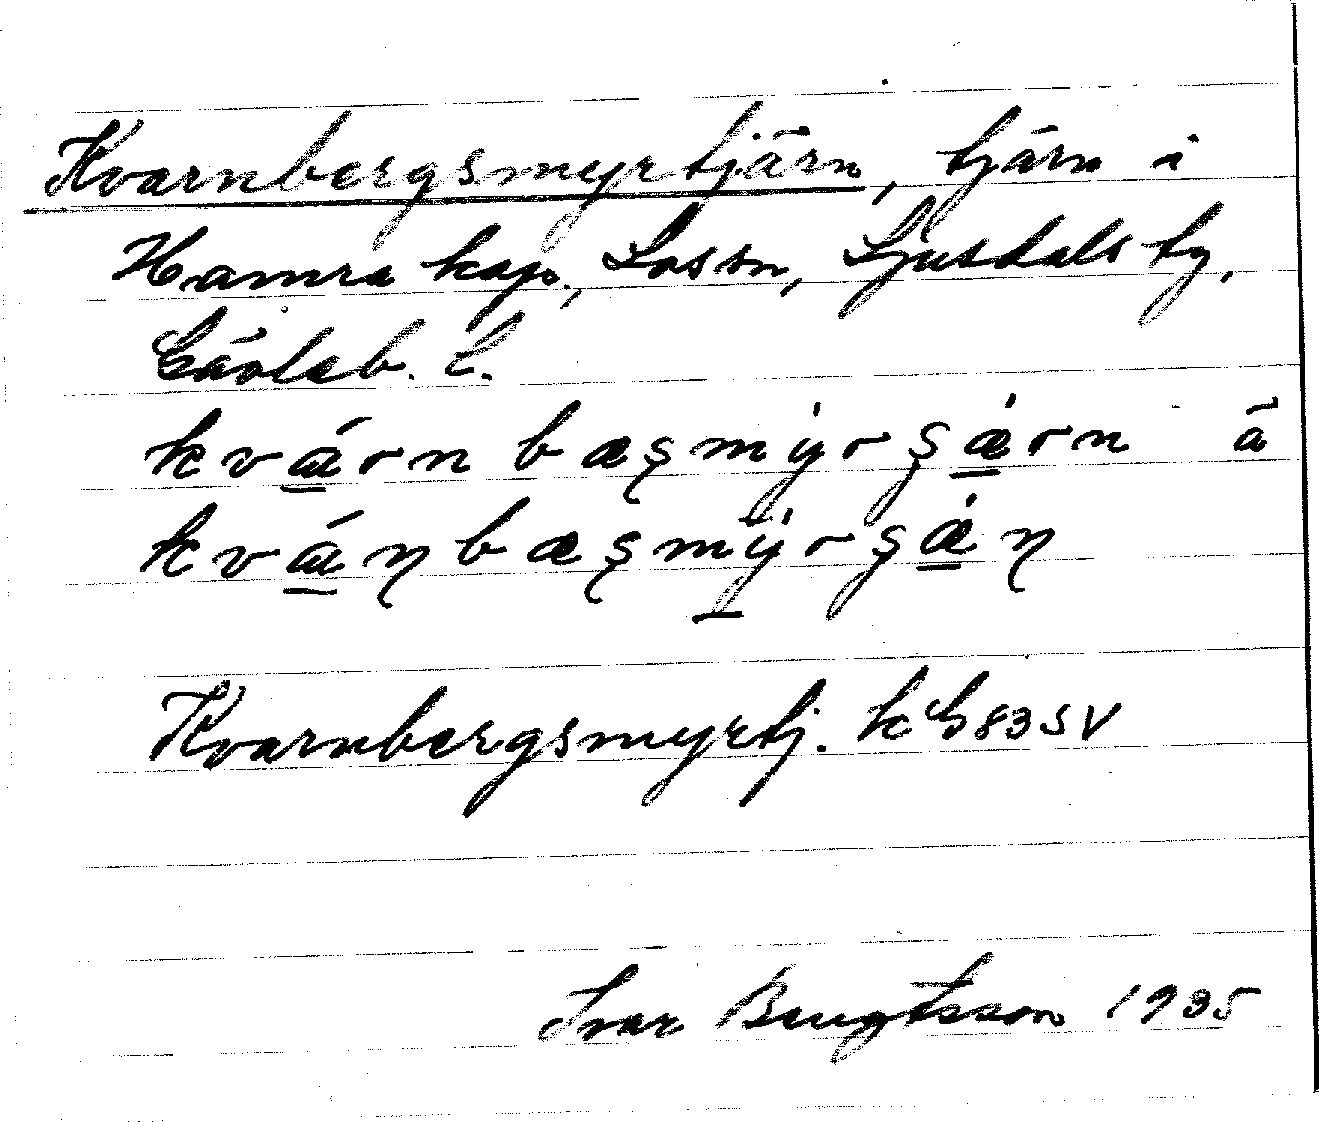 Kvarnbergsmyrtjärn, tjärn i
Hamra kap., Lossn, Ljusdals tg,
Gävleb. l.
kvǽrn bæșmẏrșǽrn å
kvǽņbæșmẏrșǽņ
Kvarnbergsmyrtj. k G 83 SV
Ivar Bengtsson 1935